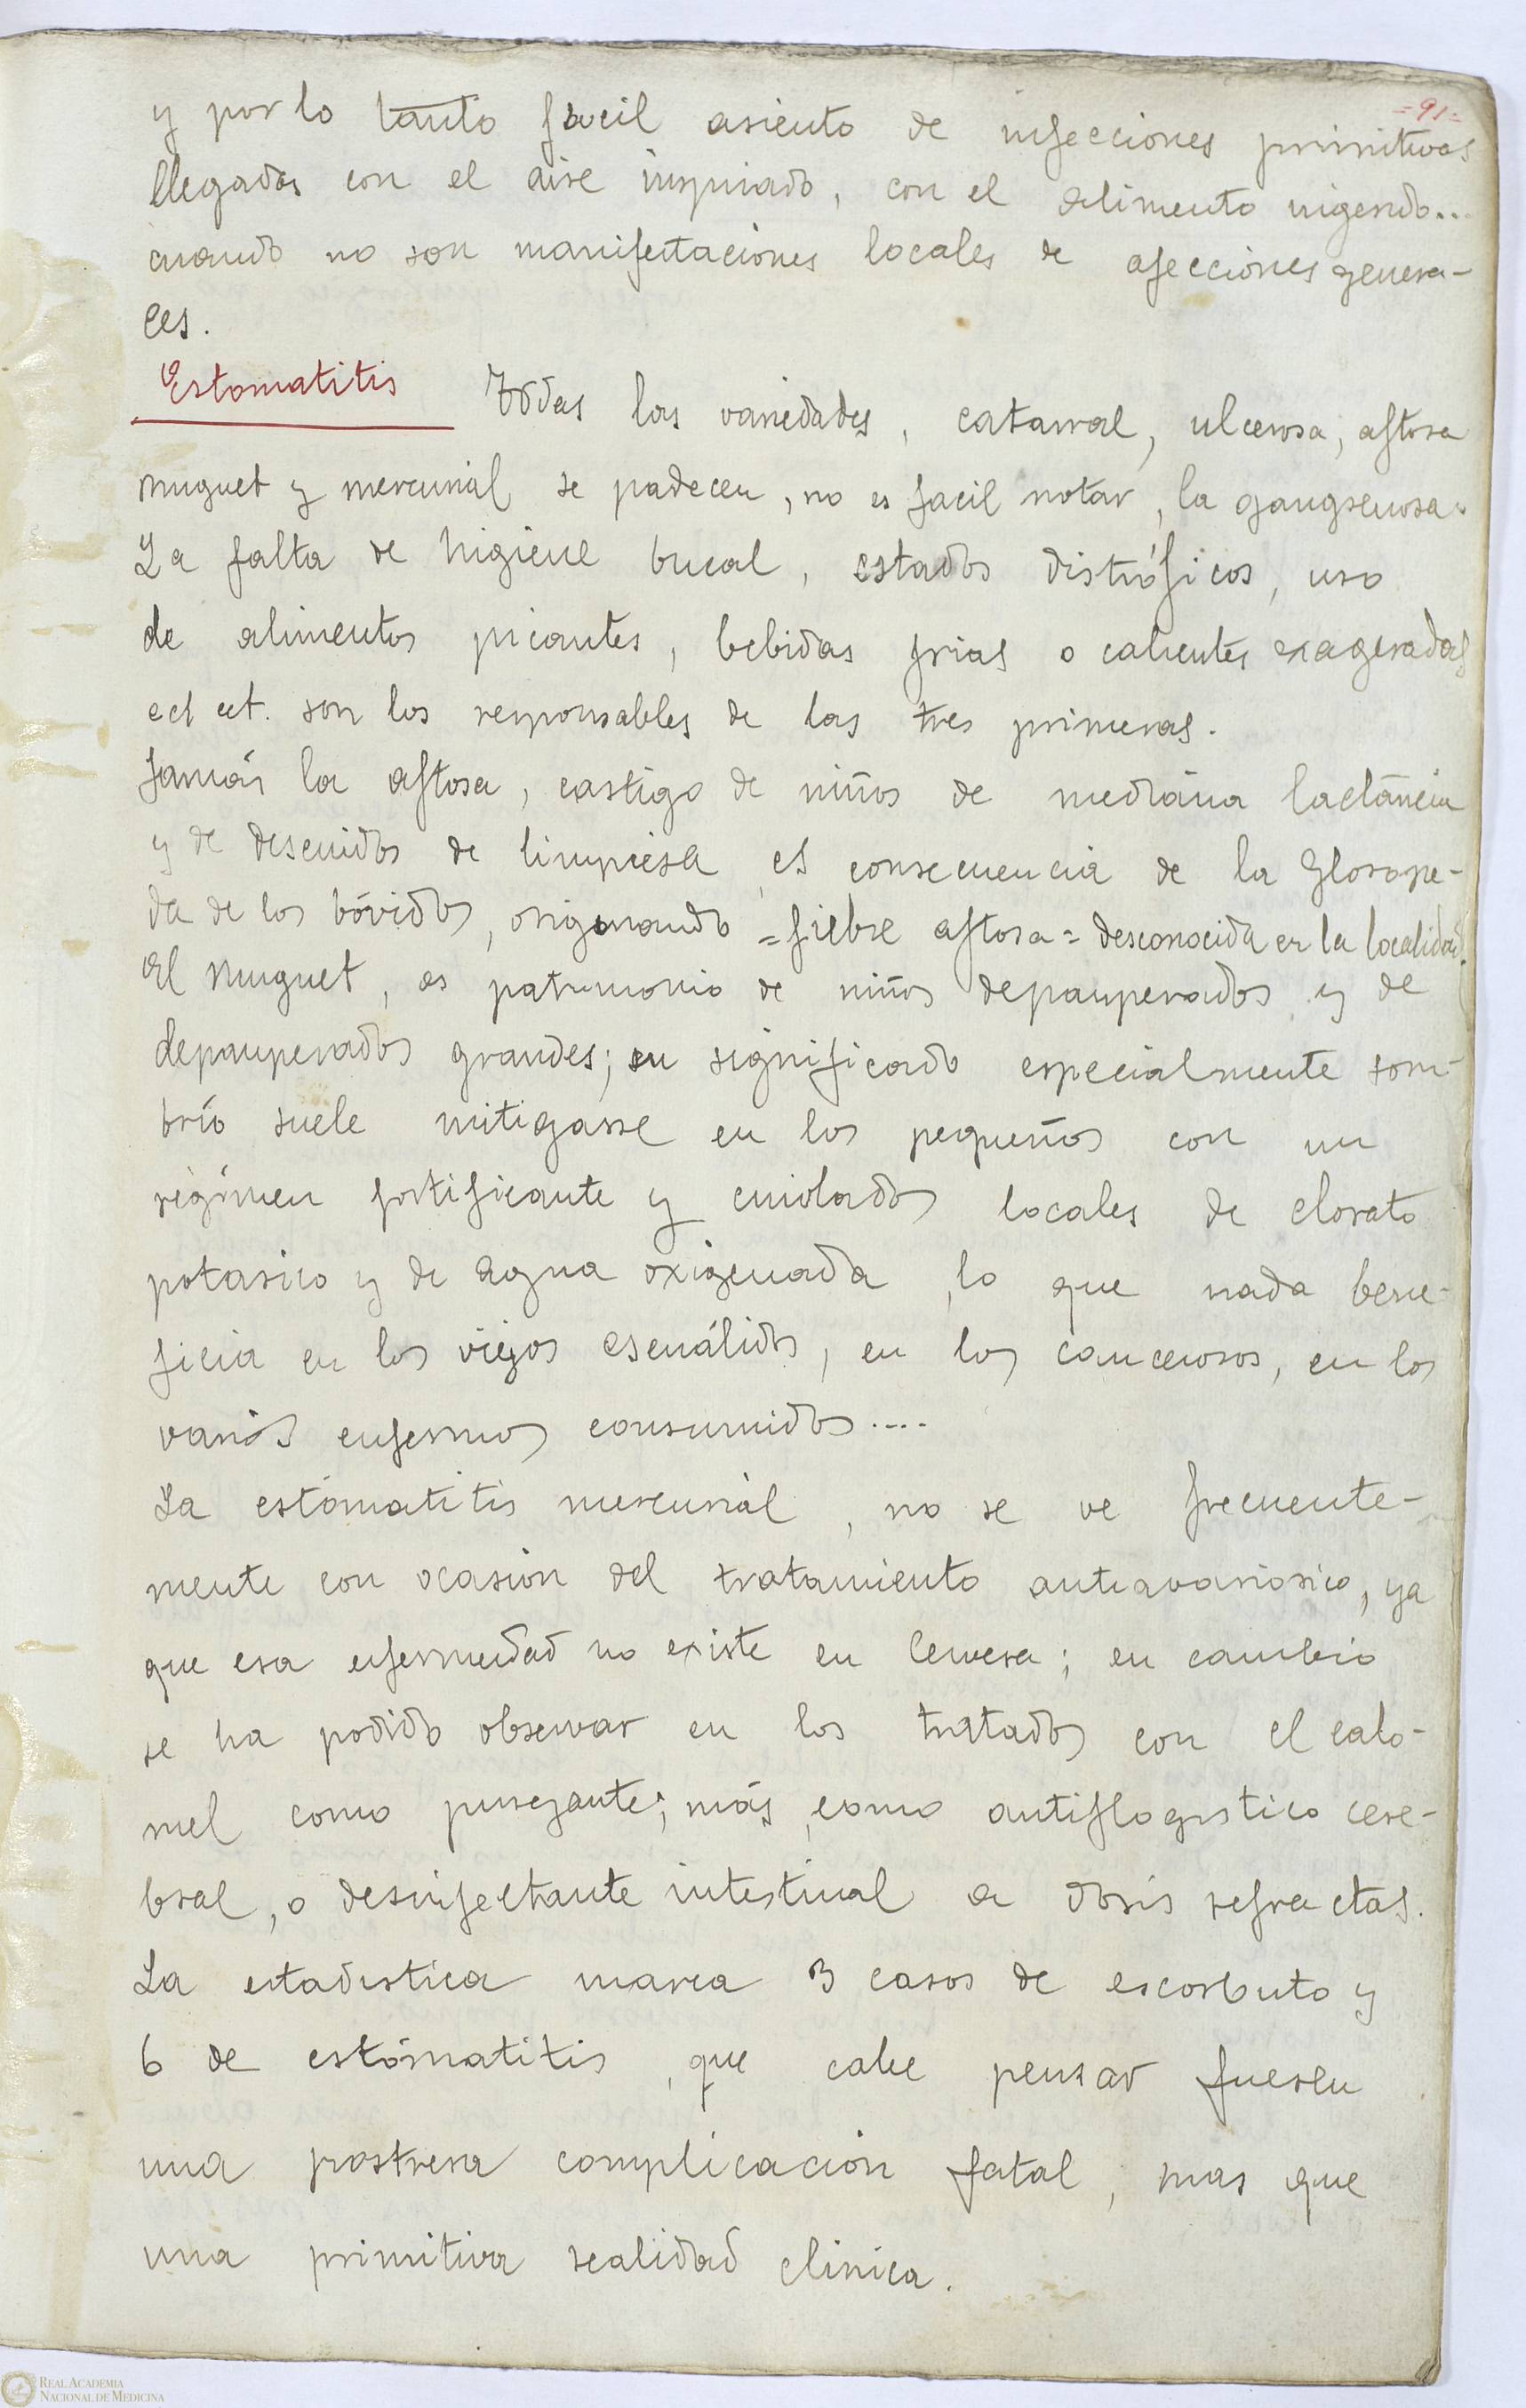 =91=
y por lo tanto facil asiento de infecciones primitivas
llegadas con el aire inspirado, con el alimento ingerido...
cuando no son manifestaciones locales de afecciones genera-
les.
Estomatitis Todas las variedades, catarral, ulcerosa, aftosa
muguet y mercurial se padecen, no es facil notar, la gangrenosa.
La falta de higiene bucal, estados distróficos, uso
de alimentos picantes, bebidas frias o calientes exageradas
ect ect. son los responsables de las tres primeras.
Jamás la aftosa, castigo de niños de mediana lactancia
y de descuidos de limpiesa, es consecuencia de la Glosope-
da de los bóvidos, originando =fiebre aftosa= desconocida en la localidad.
El Muguet, es patrimonio de niños depauperados y de
depauperados grandes; su significado especialmente som-
brío suele mitigarse en los pequeños con un
regimen fortificante y cuidados locales de clorato
potasico y de agua oxigenada, lo que nada bene-
ficia en los viejos escuálidos, en los cancerosos, en los
varios enfermos consumidos....
La estómatitis mercurial, no se ve frecuente-
mente con ocasion del tratamiento antiavariosico, ya
que esa enfermedad no existe en Cervera; en cambio
se ha podido observar en los tratados con el calo-
mel como purgante; más, como antiflogistico cere-
bral, o desinfectante intestinal a dosis refractas.
La estadistica marca 3 casos de escorbuto y
6 de estómatitis, que cabe pensar fuesen
una postrera complicacion fatal, mas que
una primitiva realidad clinica.
REAL ACADEMIA
NACIONAL DE MEDICINA